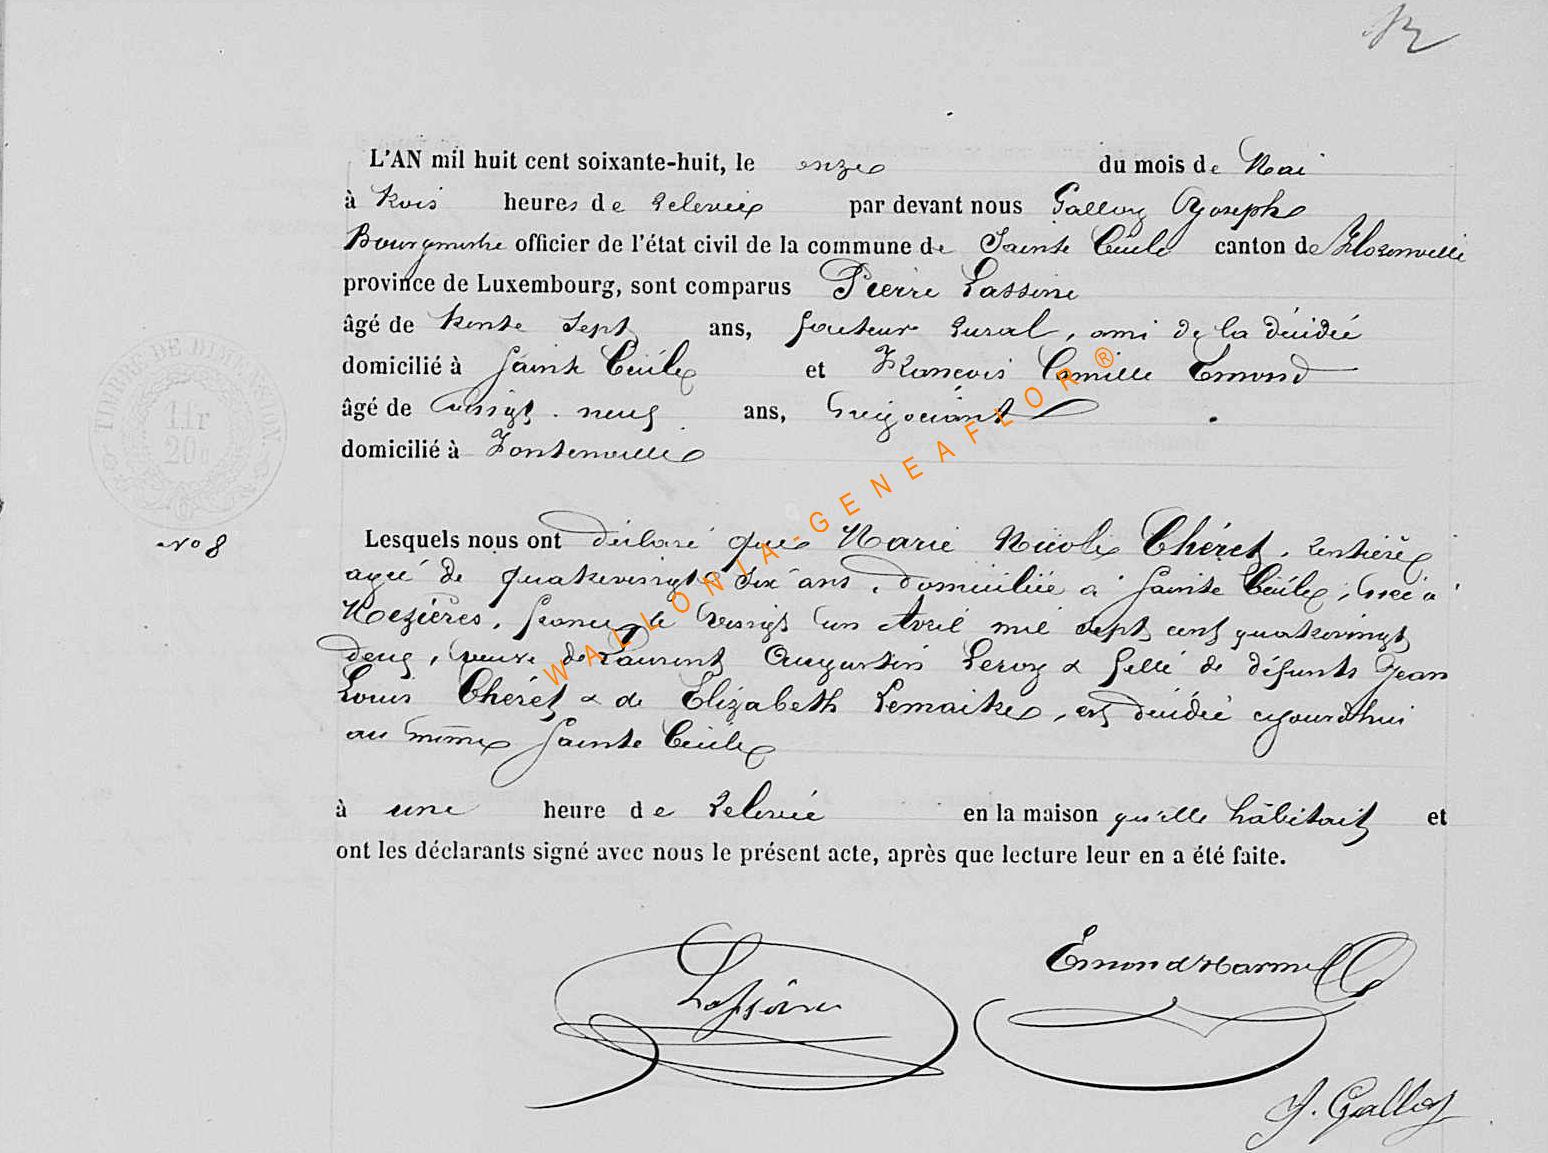 L'AN mil huit cent soixante-huit, le onze du mois de Mai
à trois heures de relevée par devant nous Galloy Joseph
Bourgmestre officier de l'état civil de la commune de Sainte Cécile canton de Florenville
province de Luxembourg, sont comparus Pierre Lassine
âgé de trente sept ans, facteur rural, ami de la décédée
domicilié à Sainte Cécile et François Camille Emond
âgé de vingt-neuf ans, négociant
domicilié à Fontenoille
TIMBRE DE DIMENSION
1 fr
20 c
No 8
Lesquels nous ont déclaré que Marie Nicole Chéret, rentière
agée de quatrevingt six ans, domiciliée à Sainte Cécile, née à
Mezières, france, le vingt un Avril mil sept cent quatrevingt
deux, veuve de Laurent Augustin Leroy & fille de défunts Jean
Louis Chéret & de Elizabeth Lemaitre, est décédée aujourd'hui
au même Sainte Cécile
à une heure de relevée en la maison qu'elle habitait et
ont les déclarants signé avec nous le présent acte, après que lecture leur en a été faite.
Lassine
Emond Harmel
J. Galloy
WALLONIA-GENEAFLOR®